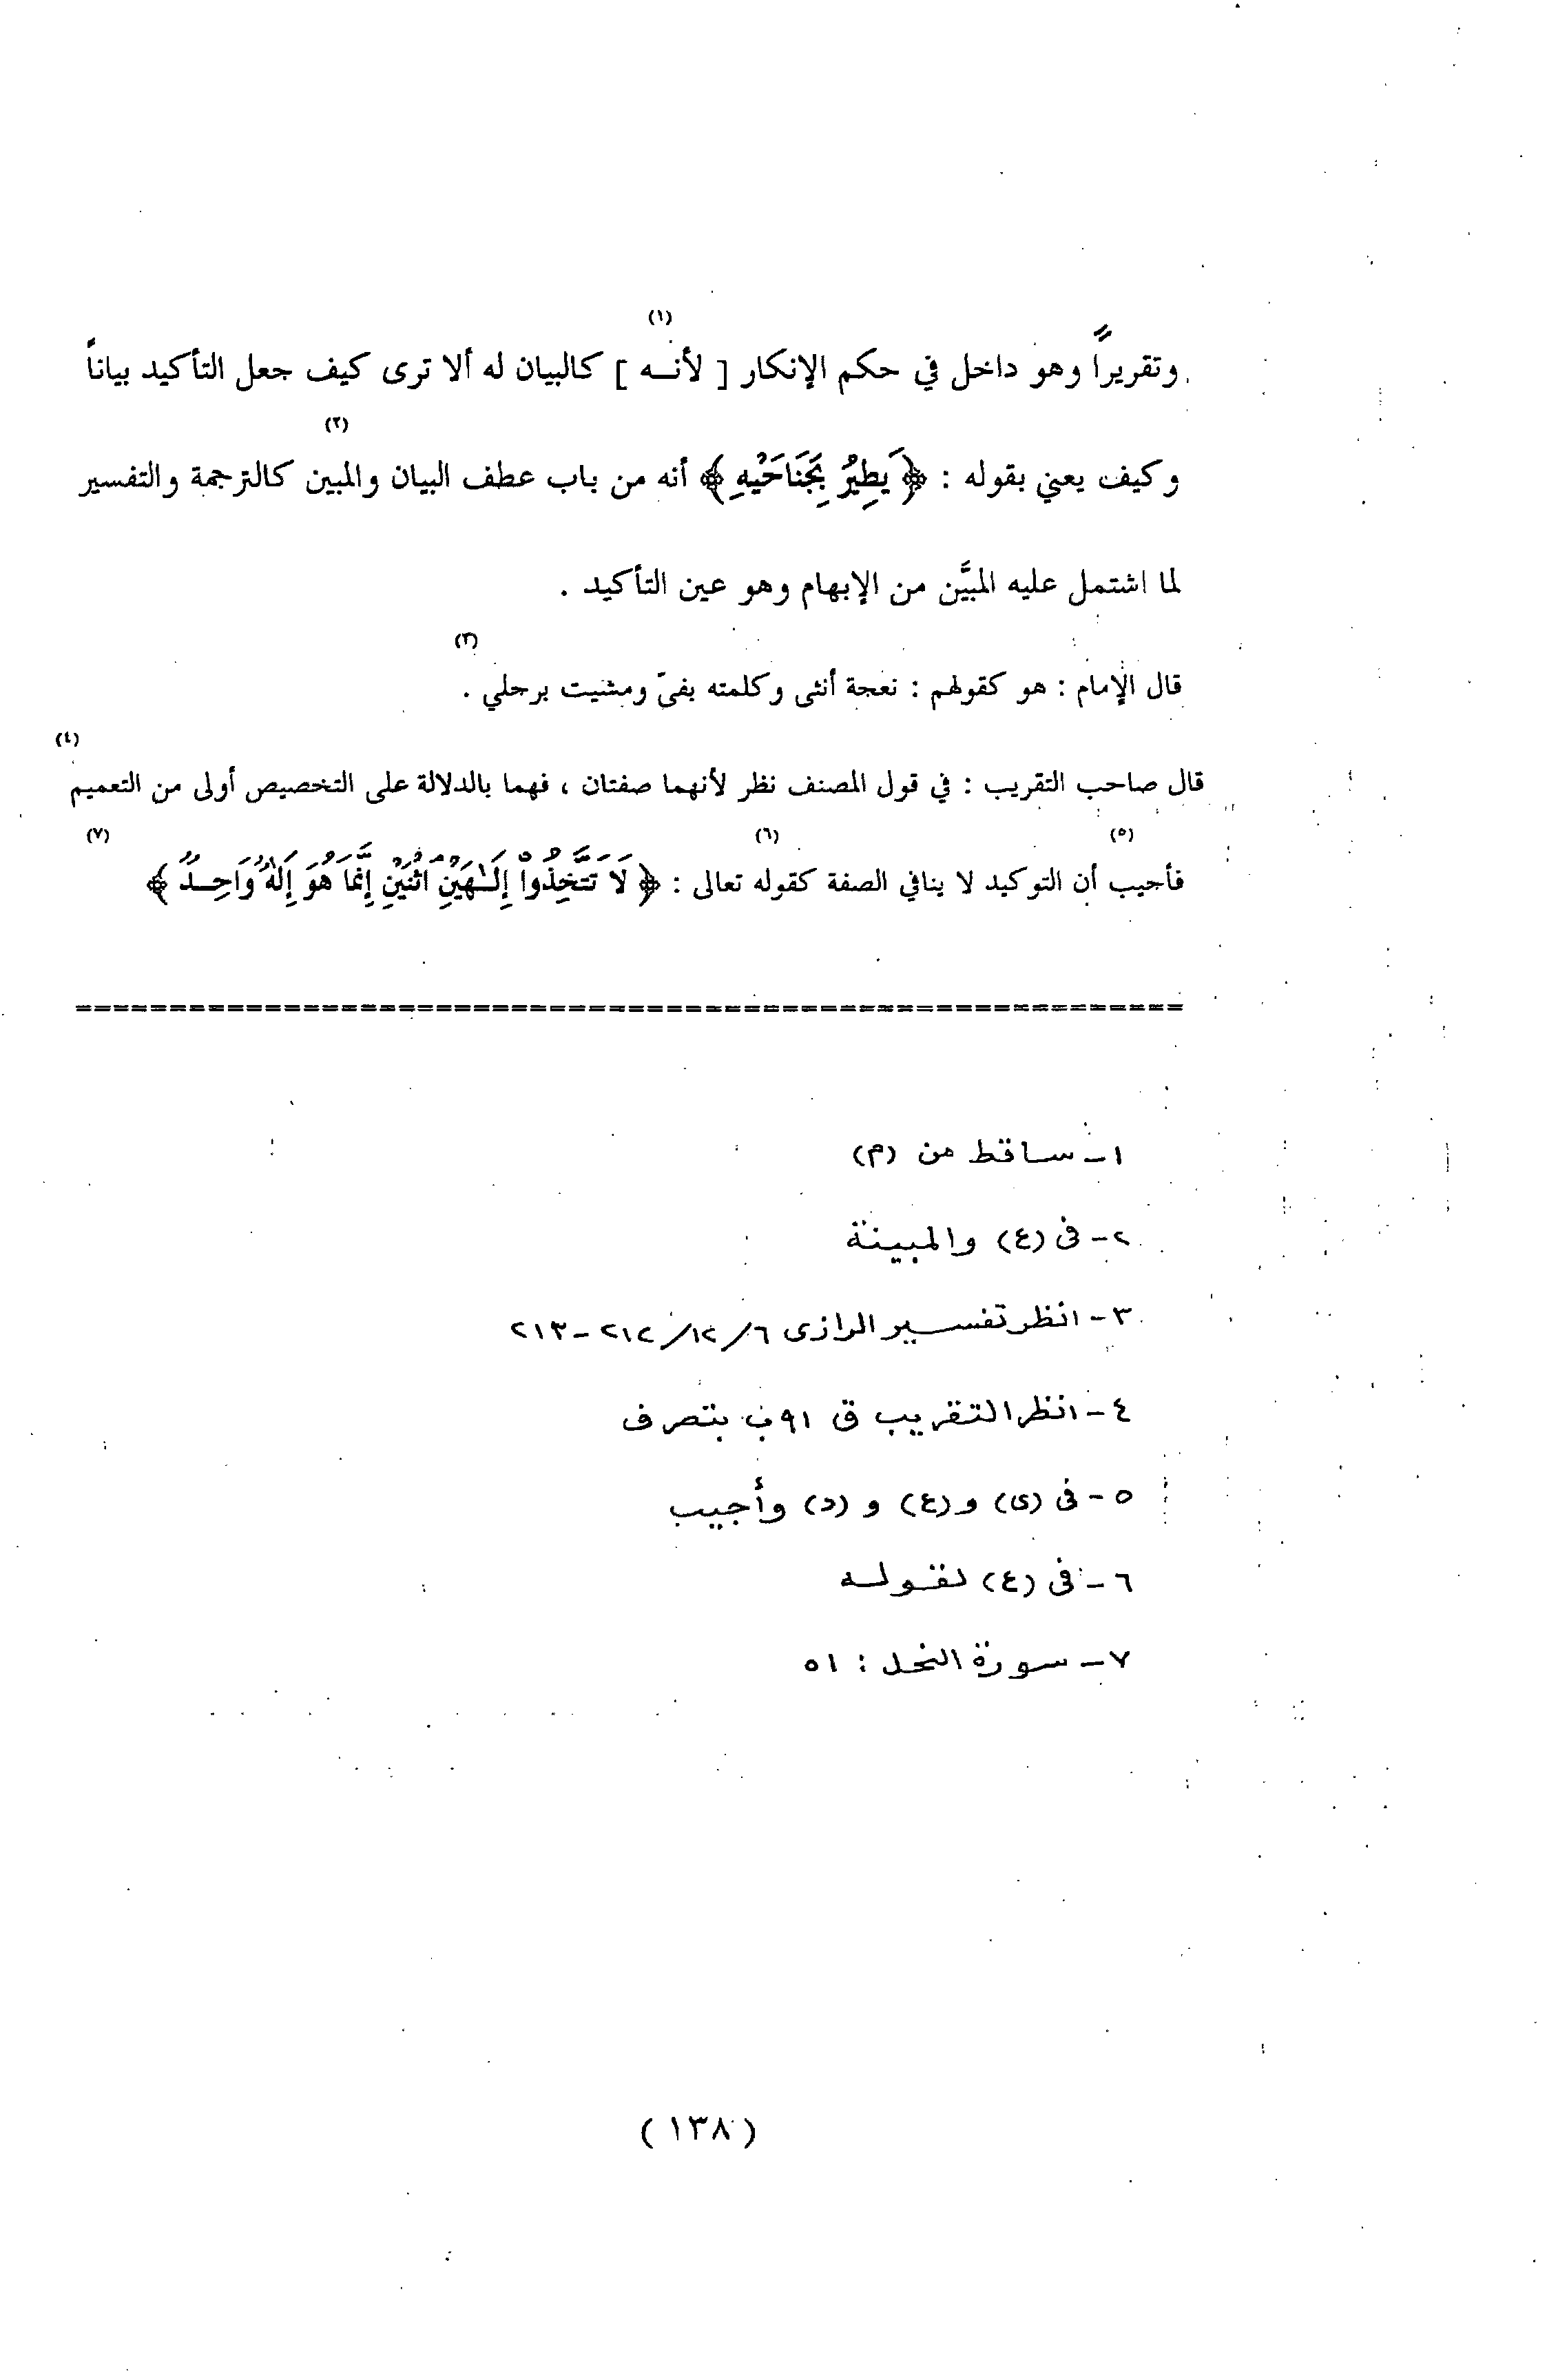 (١)
وتقريراً وهو داخل في حكم الإنكار [ لأنــه ] كالبيان له ألا ترى كيف جعل التأكيد بياناً
(٢)
وكيف يعني بقوله : ﴿ يَطِيرُ بِجَنَاحَيْهِ ﴾ أنه من باب عطف البيان والمبين كالترجمة والتفسير
لما اشتمل عليه المبيَّن من الإبهام وهو عين التأكيد .
(٣)
قال الإمام : هو كقولهم : نعجة أنثى وكلمته بفىّ ومشيت برجلي .
(٤)
قال صاحب التقريب : في قول المصنف نظر لأنهما صفتان ، فهما بالدلالة على التخصيص أولى من التعميم
(٥) (٦) (٧)
فأجيب أن التوكيد لا ينافي الصفة كقوله تعالى : ﴿ لَا تَتَّخِذُوا إِلَـٰهَيْنِ اثْنَيْنِ إِنَّمَا هُوَ إِلَٰهٌ وَاحِـدٌ ﴾
١ـ ساقط من (م)
٢- فى (ع) والمبينة
٣- انظر تفسير الرازى ٦/ ١٢/ ٢١٢-٢١٣
٤- انظر التقريب ق ٩١ب بتصرف
٥- فى (ى) و (ع) و (د) وأجيب
٦- فى (ع) لقوله
٧- سورة النحل : ٥١
( ١٣٨ )